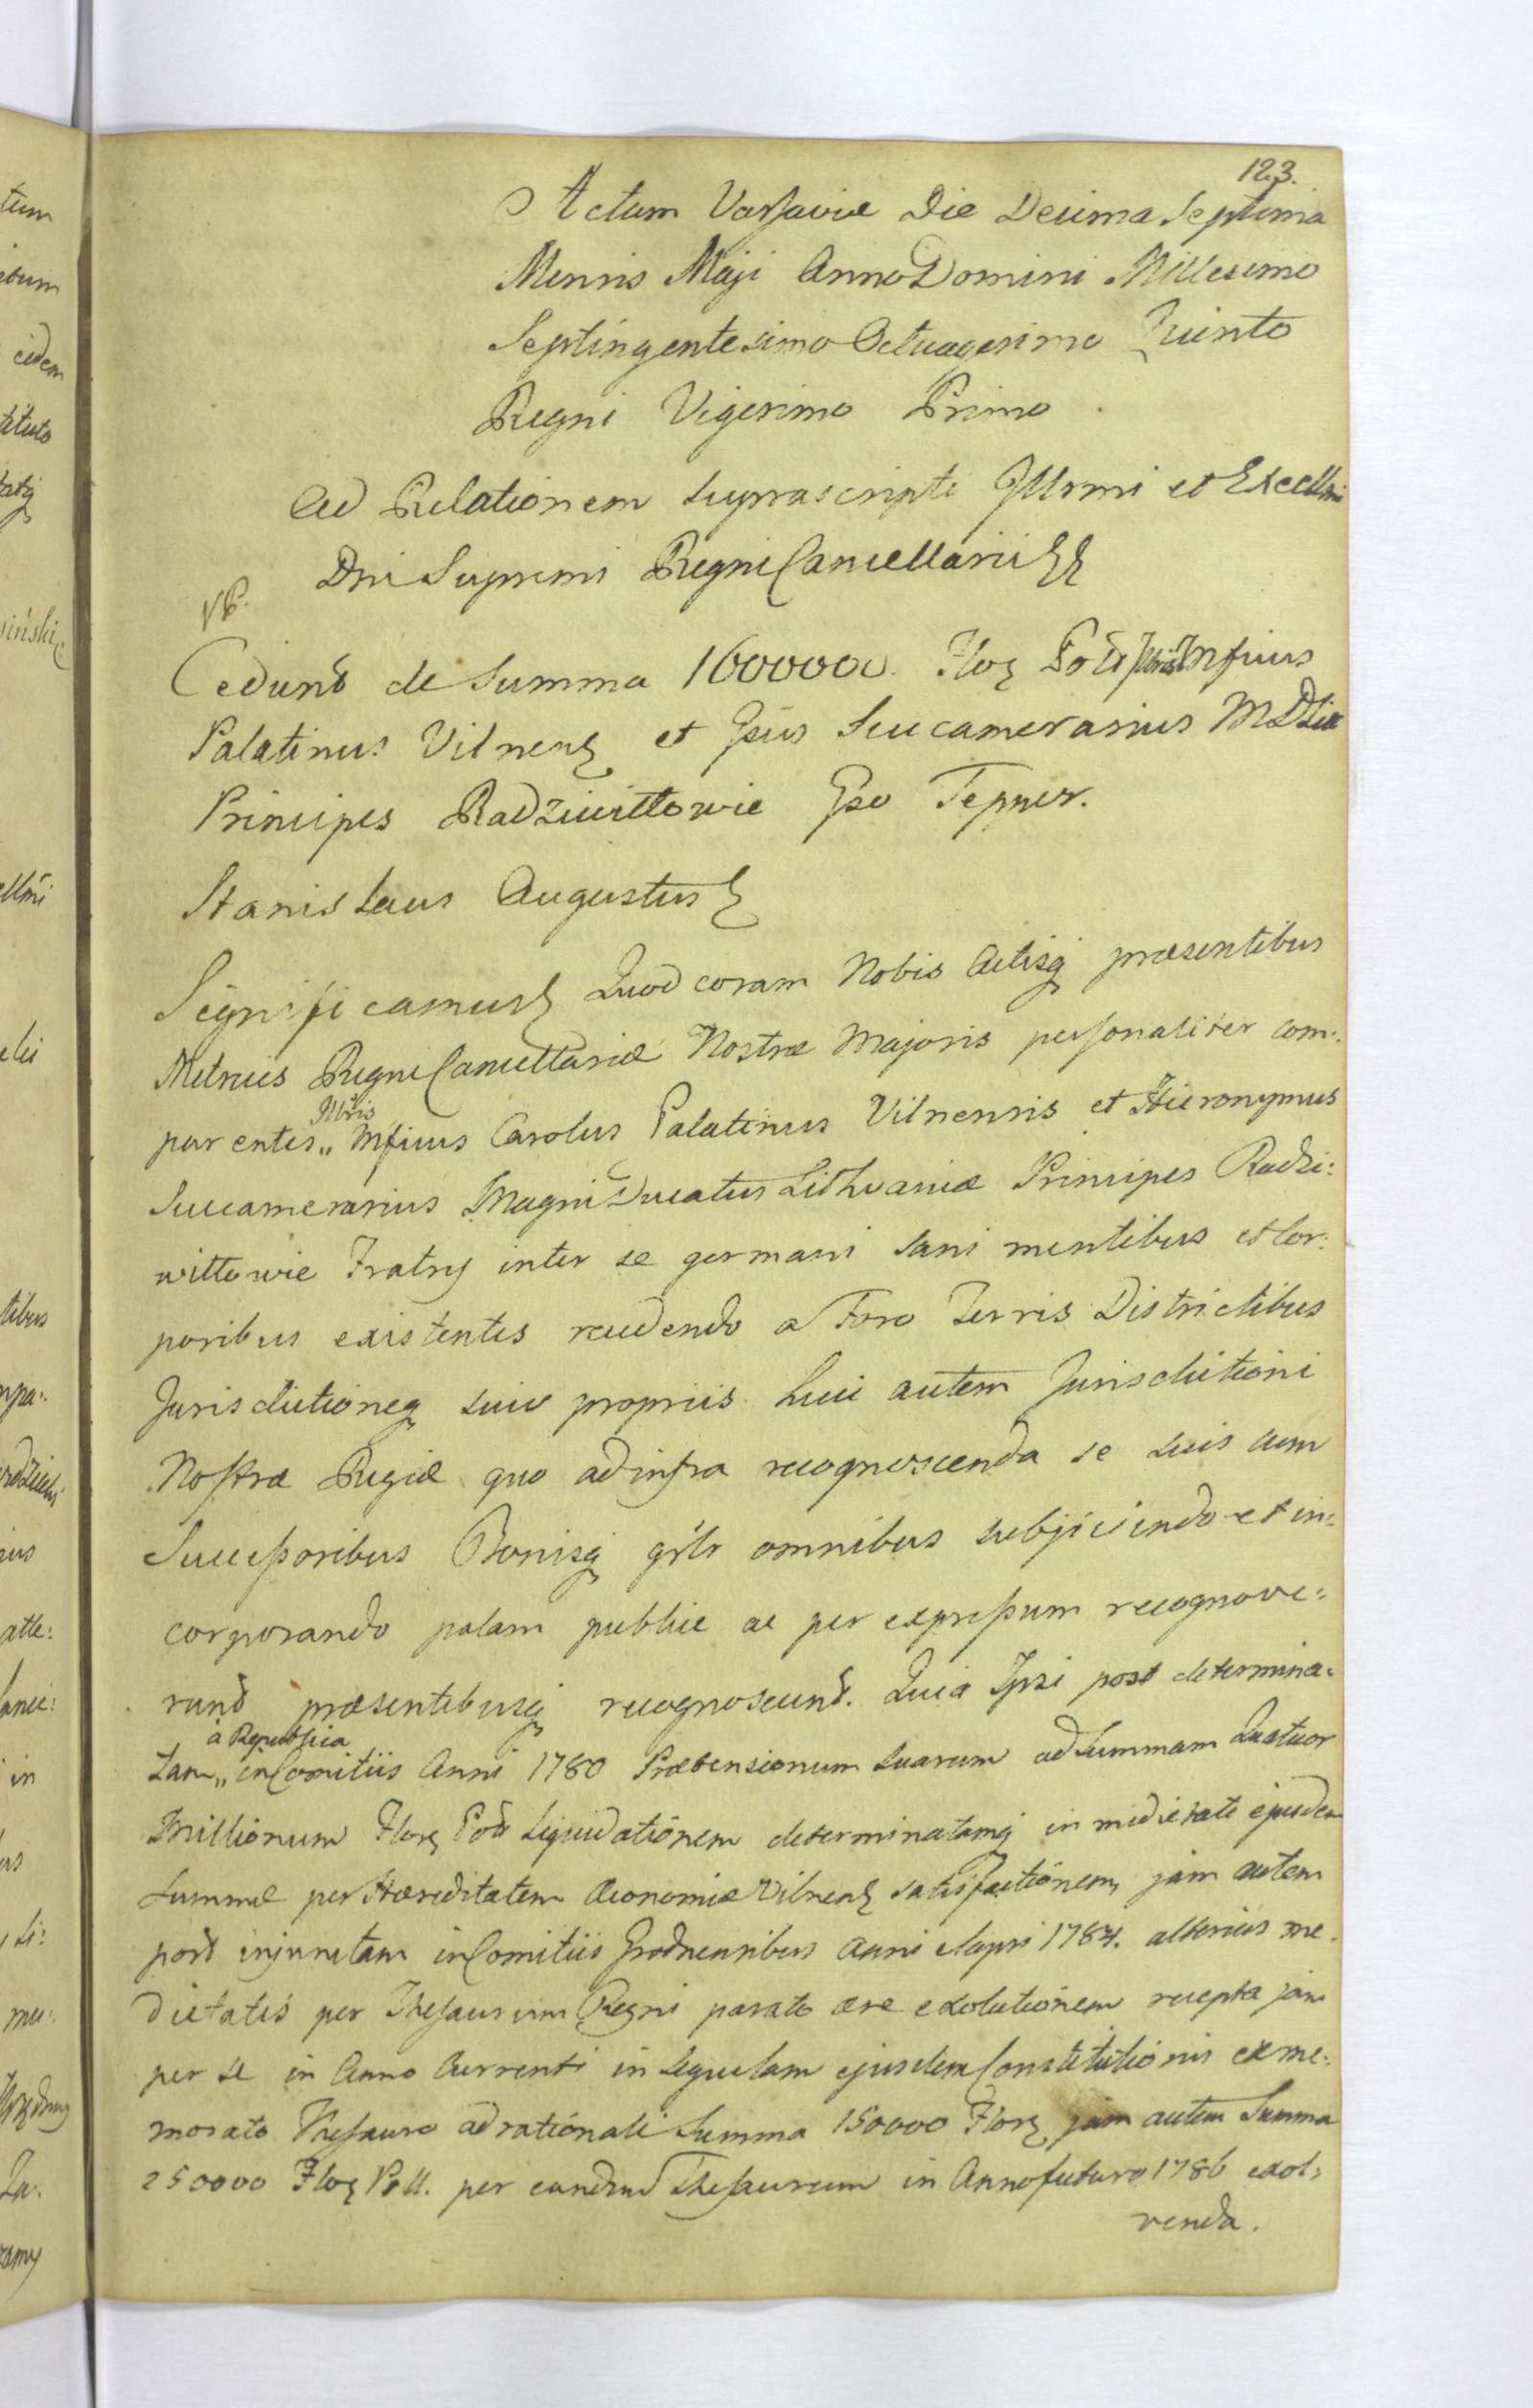 123.
Actum Varsaviæ Die Decima Septima
Mensis Maji Anno Domini Millesimo
Septingentesimo Octuagesimo Quinto
Regni Vigesimo Primo.
Ad Relationem suprascripti Illrmi et Excellmi
Dni Supremi Regni Cancellarii
Cedunt de Summa 1600000. Flor Pol Illris Mfficus
Palatinus Vilnens et Gsus Succamerarius MDLiæ
Principes Radziwiłłowie Gso Tepper.
Stanislaus Augustus
Significamus Quod coram Nobis Actisq præsentibus
Metrices Regni Cancellariæ Nostræ Majoris personaliter com:
Illris
parentes „ Mficus Carolus Palatinus Vilnensis et Hieronymus
Succamerarius Magni Ducatus Lithvaniæ Principes Radzi:
wiłłowie Fratres inter se germani sani mentibus et Cor:
poribus existentes recedendo a Foro Terris Districtibus
Jurisdictioneq suis propriis huic autem Jurisdictioni
Nostræ Regiæ quo ad infra recognoscenda se suis cum
Successoribus Bonisq gñlr omnibus subjiciendo et in:
corporando palam publice ac per expressum recognove:
runt præsentibusq recognoscunt. Quia Ipsi post determina:
à Republica
tam „ in Comitiis Anni 1780 Prætensionum Suarum ad Summam Quatuor
Millionum Flor Pol Liquidationem determinatamq in medietate ejusdem
Summæ per Hæreditatem Œconomiæ Vilnens satisfactionem, jam autem
post injunctam in Comitiis Grodnensibus Anni elapsi 1784. alterius me
dietatis per Thesaurum Regni parato ære exolutionem recepta jam
per se in Anno Currenti in Sequelam ejusdem Constitutionis ex me:
morato Thesauro ad rationem Summa 150000 Flor jam autem Summa
250000 Flor Poll. per eundem Thesaurum in Anno futuro 1786 exol:
venda.